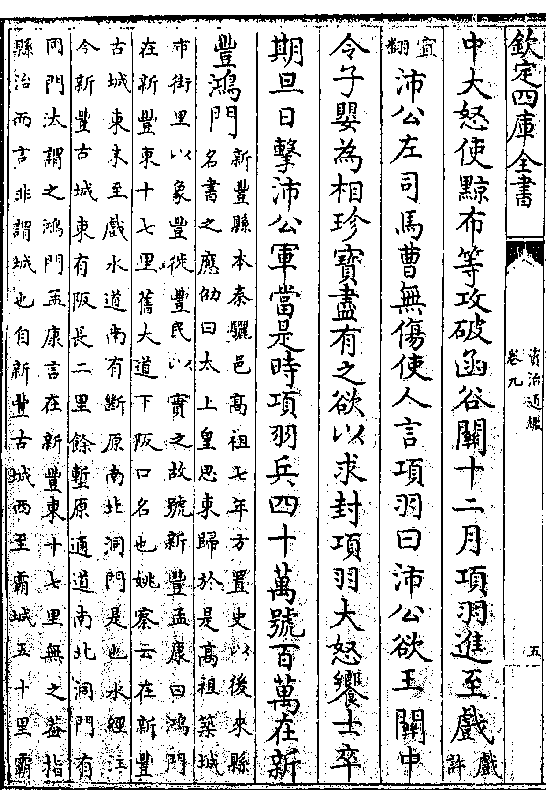 欽定四庫全書
資治通鑑
卷九
五
中大怒使黥布等攻破函谷關十二月項羽進至戲戲許
宜翻沛公左司馬曹無傷使人言項羽曰沛公欲王關中
令子嬰為相珍寶盡有之欲以求封項羽大怒饗士卒
期旦日擊沛公軍當是時項羽兵四十萬號百萬在新
豐鴻門新豐縣本秦驪邑高祖七年方置史以後來縣
名書之應劭曰太上皇思東歸於是高祖築城
市街里以象豐徙豐民以實之故號新豐孟康曰鴻門
在新豐東十七里舊大道下阪口名也姚察云在新豐
古城東未至戲水道南有斷原南北洞門是也水經注
今新豐古城東有阪長二里餘塹原通道南北洞門有
同門汰謂之鴻門孟康言在新豐東十七里無之蓋指
縣治而言非謂城也自新豐古城西至霸城五十里霸